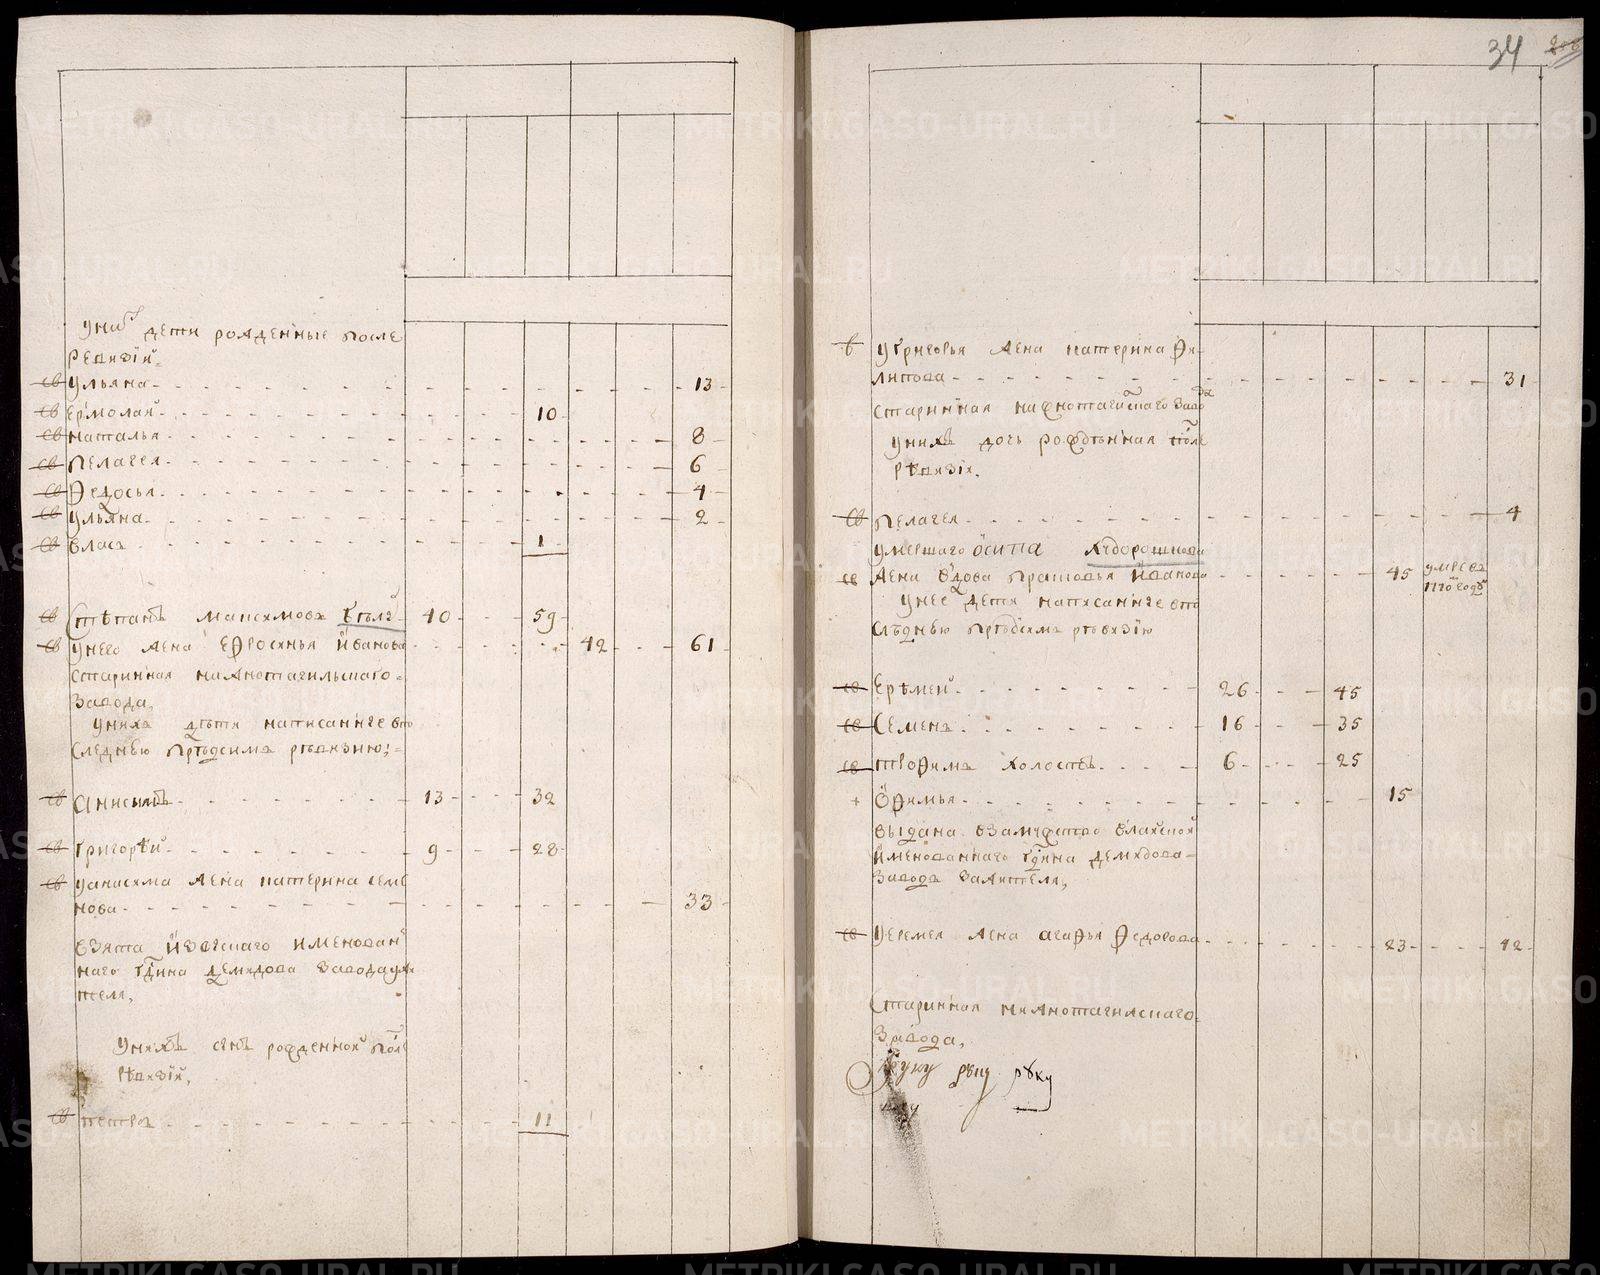 34
у них дети рожденные после
ревизии
св Ульяна 13
св Ермолай 10
св Наталья 8
св Пелагея 6
св Федосья 4
св Ульяна 2
св Власъ 1
св Стѣпанъ Максимовъ 40 59
св у него жена Ефросинья Иванова 42 61
старинная нижнотагильскаго
завода,
у нихъ дѣти написанные въ по
следнью предсимъ рѣвизию
св Анисимъ 13 32
св Григорѣй 9 28
св у Анисима жена Катерина Семе
нова 33
взята из
именован
наго гдина Демидова завода жи
теля,
у нихъ сынъ рожденной после
рѣвизіи,
св Петръ 11
св у Григорья жена Катерина Фи
липова 31
старинная нижнотагилскаго завода
у нихъ дочь рожденная после
рѣвизіи.
св Пелагея 4
умершаго Осипа Худорошкова
св жена вдова Прасковья Иванова 45 умре въ
году
у нее дети написанные въ по
следнью предсимъ рѣвизію
св Ерѣмей 26 45
св Семенъ 16 35
св Трофимъ холостъ 6 25
+ Офимья 15
выдана в замужство
именованнаго гдина Демидова
завода за жителя,
св у Еремея жена Агафья Федорова 23 42
старинная нижнотагилскаго
завода,
руку
METRIKI.GASO-URAL.RU